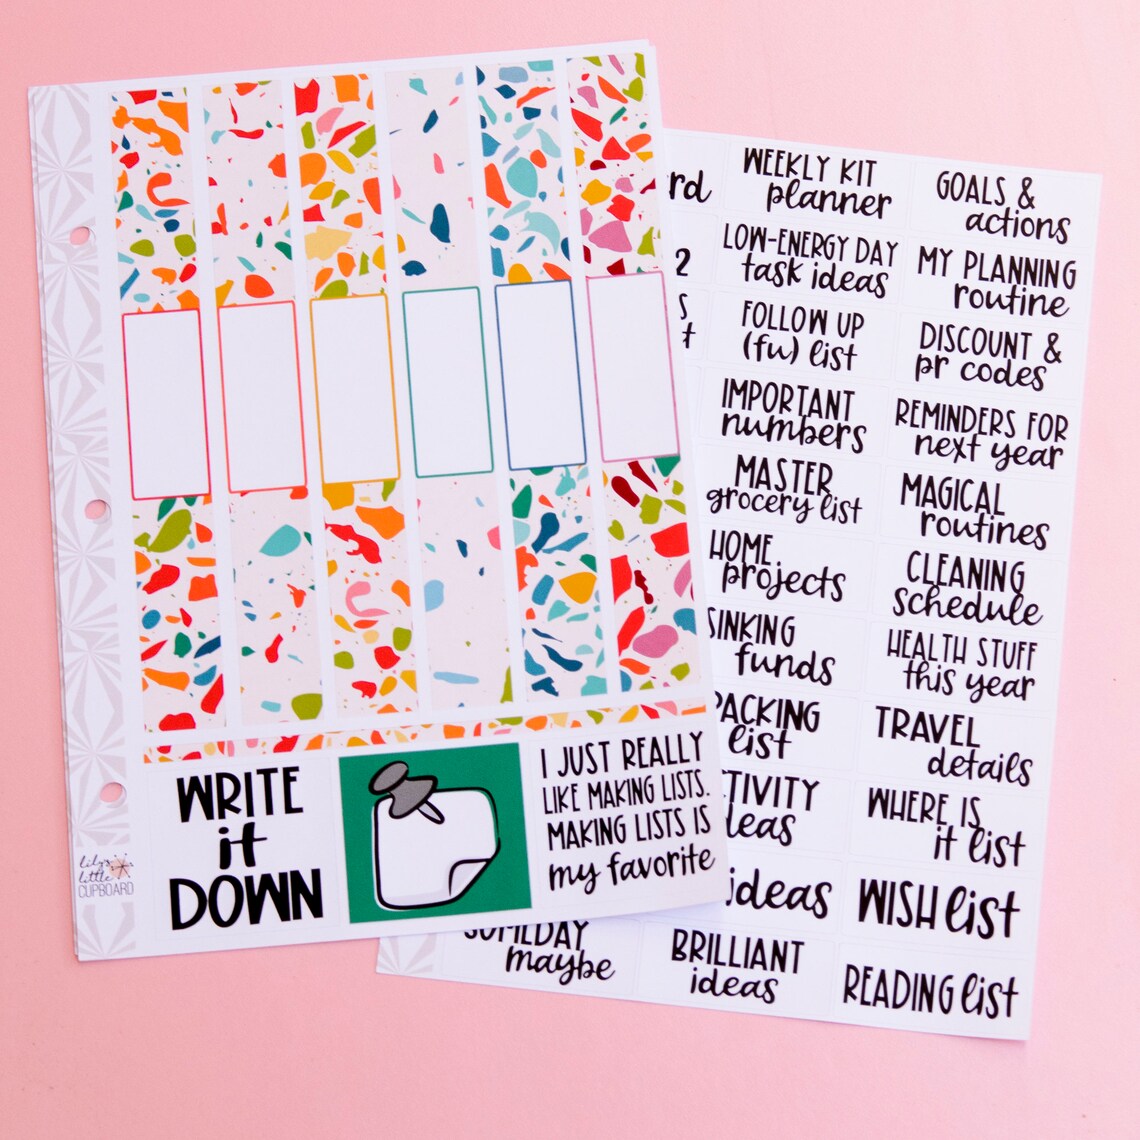 WRITE
it
DOWN
I JUST REALLY
LIKE MAKING LISTS.
MAKING LISTS IS
my favorite
lily's
little
CUPBOARD
WEEKLY KIT
planner
LOW-ENERGY DAY
task ideas
2
FOLLOW UP
(fu) list
IMPORTANT
numbers
MASTER
grocery list
HOME
projects
SINKING
funds
PACKING
list
ideas
SOMEDAY
maybe
BRILLIANT
ideas
GOALS &
actions
MY PLANNING
routine
DISCOUNT &
pr codes
REMINDERS FOR
next year
MAGICAL
routines
CLEANING
schedule
HEALTH STUFF
this year
TRAVEL
details
WHERE IS
it list
WISH list
READING list